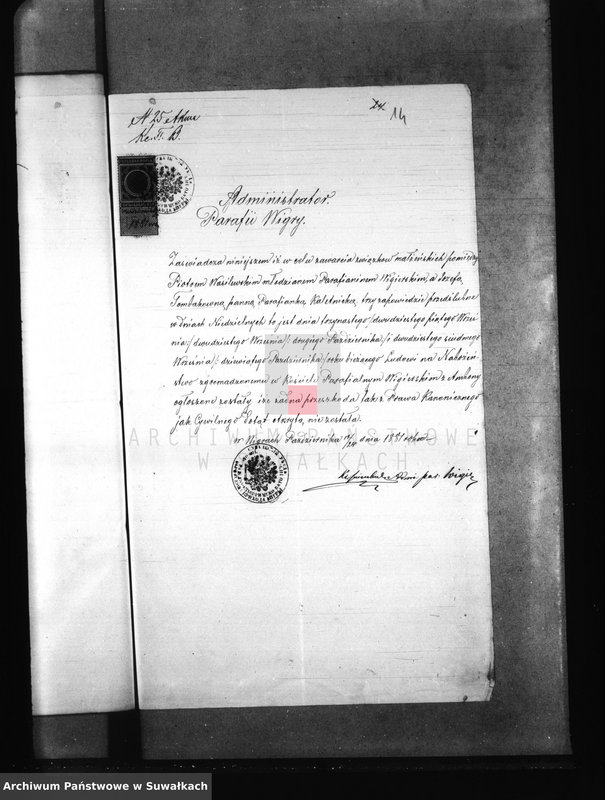 N 25 Akwa
24 14
Ks. T. B.
Administrator
Parafii Wigry.
Zaświadcza niniejszem iż w celu zawarcia związkow małżeńskich pomiędzy
Piotrem Wasilewskim młodzianem Parafianinem Wigierskim, a Józefą
Tombakowną panną Parafianką Kaletnicką, trzy zapowiedzie przedślubne
w dniach Niedzielnych to jest dnia trzynastego /:dwudziestego piątego Wrze
śnia:/ dwudziestego Września /: drugiego Października:/ i dwudziestego siódmego
Września /: dziewiątego Października:/ roku bieżącego Ludowi na Nabożeń
stwo zgromadzonemu w Kościele Parafialnym Wigierskim z Ambony
ogłoszone zostały i że żadna przeszkoda tak z Prawa Kanonicznego
jak Cywilnego dotąd odkrytą nie została.
w Wigrach Października dnia 1881 roku
par. Wigry
ARCHIWUM PAŃSTWOWE
W SUWAŁKACH
Archiwum Państwowe w Suwałkach